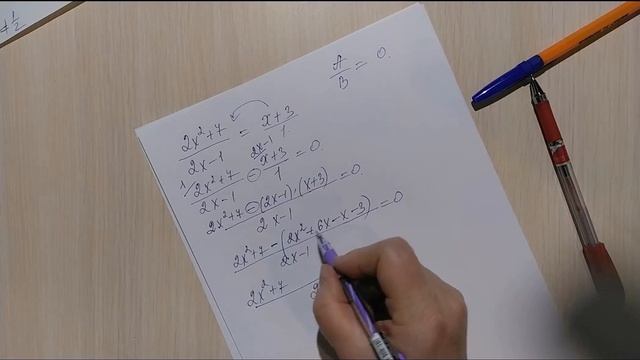 ≠ 1/2
A/B = 0.
(2x²+7)/(2x-1) = (x+3)/1.
1/ (2x²+7)/(2x-1) - 2x-1/ (x+3)/1 = 0.
(2x²+7-(2x-1)·(x+3))/(2x-1) = 0.
(2x²+7-(2x²+6x-x-3))/(2x-1) = 0
2x²+7 2